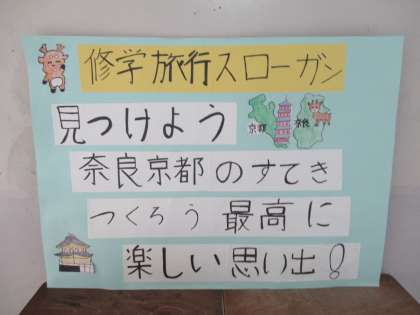 修学旅行スローガン
見つけよう
京都 奈良
奈良京都のすてき
つくろう最高に
楽しい思い出!